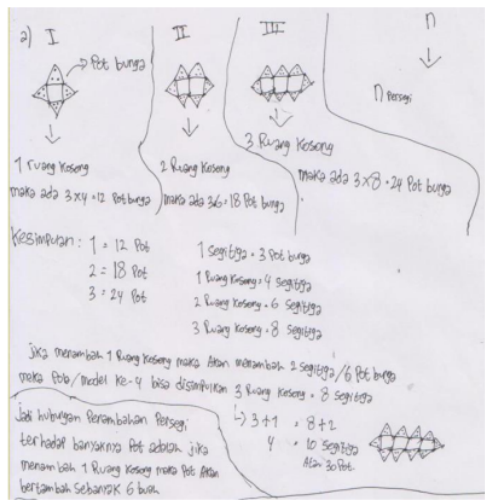 a) I
II
III
n
Pot bunga
n Persegi
1 ruang kosong
2 Ruang kosong
3 Ruang kosong
maka ada 3x4 = 12 Pot bunga
maka ada 3x6 = 18 Pot bunga
maka ada 3x8 = 24 Pot bunga
Kesimpulan : 1 = 12 Pot
2 = 18 Pot
3 = 24 Pot
1 segitiga = 3 Pot bunga
1 Ruang kosong = 4 segitiga
2 Ruang kosong = 6 segitiga
3 Ruang kosong = 8 segitiga
jika menambah 1 Ruang kosong maka Akan menambah 2 segitiga/6 Pot bunga
maka Pola/model ke-4 bisa disimpulkan 3 Ruang kosong = 8 segitiga
3+1 = 8+2
4 = 10 segitiga
Atau 30 Pot.
Jadi hubungan Penambahan Persegi
terhadap banyaknya Pot adalah jika
menambah 1 Ruang kosong maka Pot Akan
bertambah sebanyak 6 buah